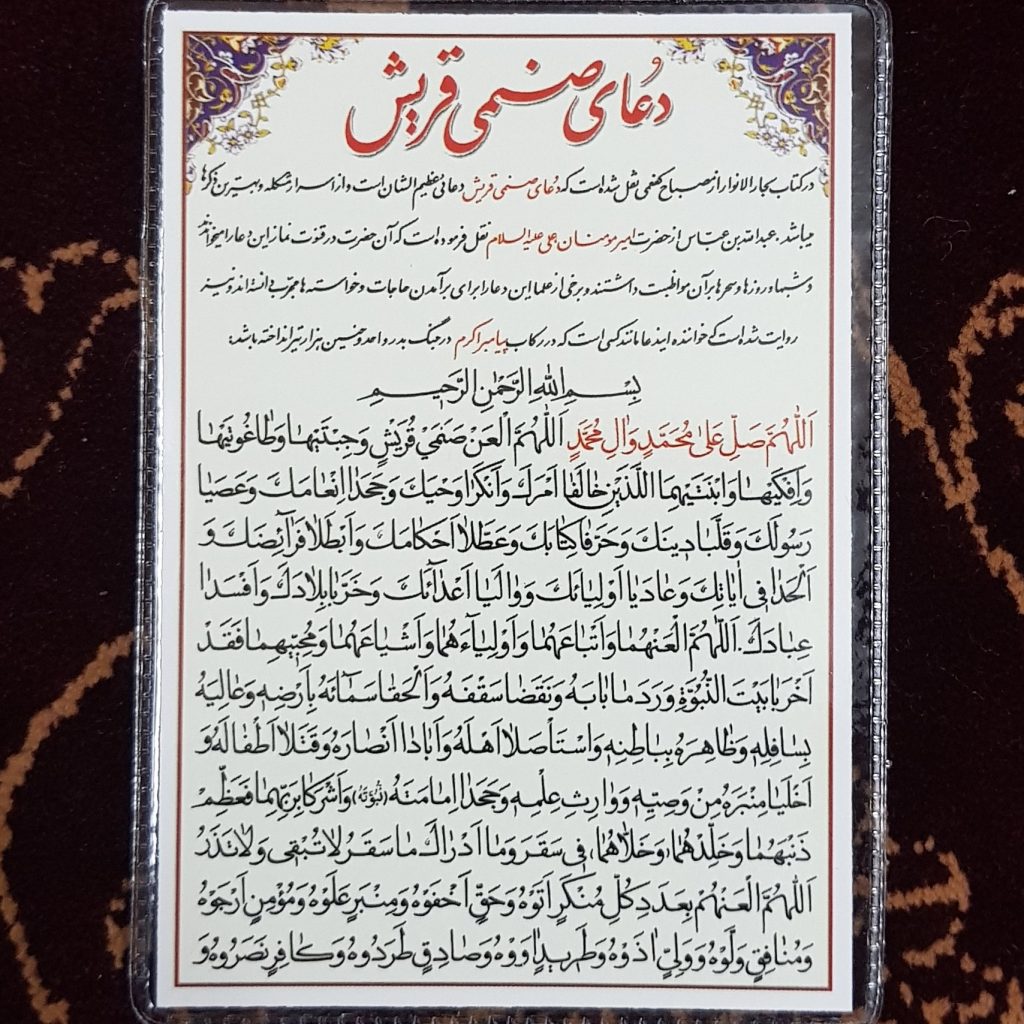 دُعای صنمی قریش
در کتاب بحار الانوار از مصباح کفعمی نقل شده است که دُعای صنمی قریش دعائی عظیم الشان است و از اسرار مشکله و بهترین ذکرها
میباشد. عبدالله بن عباس از حضرت امیر مومنان علی علیه السلام نقل فرموده است که آن حضرت در قنوت نماز این دعا را میخواندند
و شبها و روزها و سحرها بر آن مواظبت داشتند و برخی از علما این دعا را برای برآمدن حاجات و خواسته ها مجرّب دانسته اند و نیز
روایت شده است که خواننده ایندعا مانند کسی است که در رکاب پیامبر اکرم در جنگ بدر و احد و حنین هزار تیر انداخته باشد:
بِسْمِ اللهِ الرَّحْمٰنِ الرَّحیمِ
اَللّٰهُمَّ صَلِّ عَلیٰ مُحَمَّدٍ وَالِ مُحَمَّدٍ اَللّٰهُمَّ الْعَنْ صَنَمَیْ قُرَیْشٍ وَجِبْتَیْها وَطاغُوتَیْها
وَاِفْکَیْها وَابْنَتَیْهِمَا اللَّذَیْنِ خالَفا اَمْرَكَ وَاَنْکَرا وَحْیَكَ وَجَحَدا اِنْعامَكَ وَعَصَیا
رَسُولَكَ وَقَلَّبا دینَكَ وَحَرَّفا کِتابَكَ وَعَطَّلا اَحْکامَكَ وَاَبْطَلا فَرآئِضَكَ وَ
اَلْحَدا فی ایاتِكَ وَعادَیا اَوْلِیائَكَ وَوالَیا اَعْدآئَكَ وَخَرَّبا بِلادَكَ وَاَفْسَدا
عِبادَكَ. اَللّٰهُمَّ الْعَنْهُما وَاَتْباعَهُما وَاَوْلِیآءَهُما وَاَشْیاعَهُما وَمُحِبّیهِما فَقَدْ
اَخْرَبا بَیْتَ النُّبُوَّةِ وَرَدَما بابَهُ وَنَقَضا سَقْفَهُ وَاَلْحَقا سَمائَهُ بِاَرْضِهِ وَعالِیَهُ
بِسافِلِهِ وَظاهِرَهُ بِباطِنِهِ وَاسْتَأصَلا اَهْلَهُ وَاَبادا اَنْصارَهُ وَقَتَلا اَطْفالَهُ وَ
اَخْلَیا مِنْبَرَهُ مِنْ وَصِیِّهِ وَوارِثِ عِلْمِهِ وَجَحَدا اِمامَتَهُ (نُبُوَّتَهُ) وَاَشْرَکا بِرَبِّهِما فَعَظِّمْ
ذَنْبَهُما وَخَلِّدْهُما، وَخَلاّهُما، فی سَقَرَ وَما اَدْراكَ ما سَقَرُ لا تُبْقی وَلا تَذَرُ
اَللّٰهُمَّ الْعَنْهُمْ بِعَدَدِ کُلِّ مُنْکَرٍ اَتَوْهُ وَحَقٍّ اَخْفَوْهُ وَمِنْبَرٍ عَلَوْهُ وَمُؤْمِنٍ اَرْجَوْهُ
وَمُنافِقٍ وَلَّوْهُ وَوَلِیٍّ اذَوْهُ وَطَریدٍ اوَوْهُ وَصادِقٍ طَرَدُوهُ وَکافِرٍ نَصَرُوهُ وَ